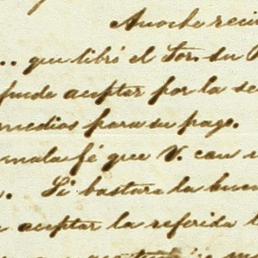 Anoche reci
... que libró el Sor. su
puede aceptar por la se
medios para su pago.
mala fé que V. con
. Si bastara la buen
aceptar la referida